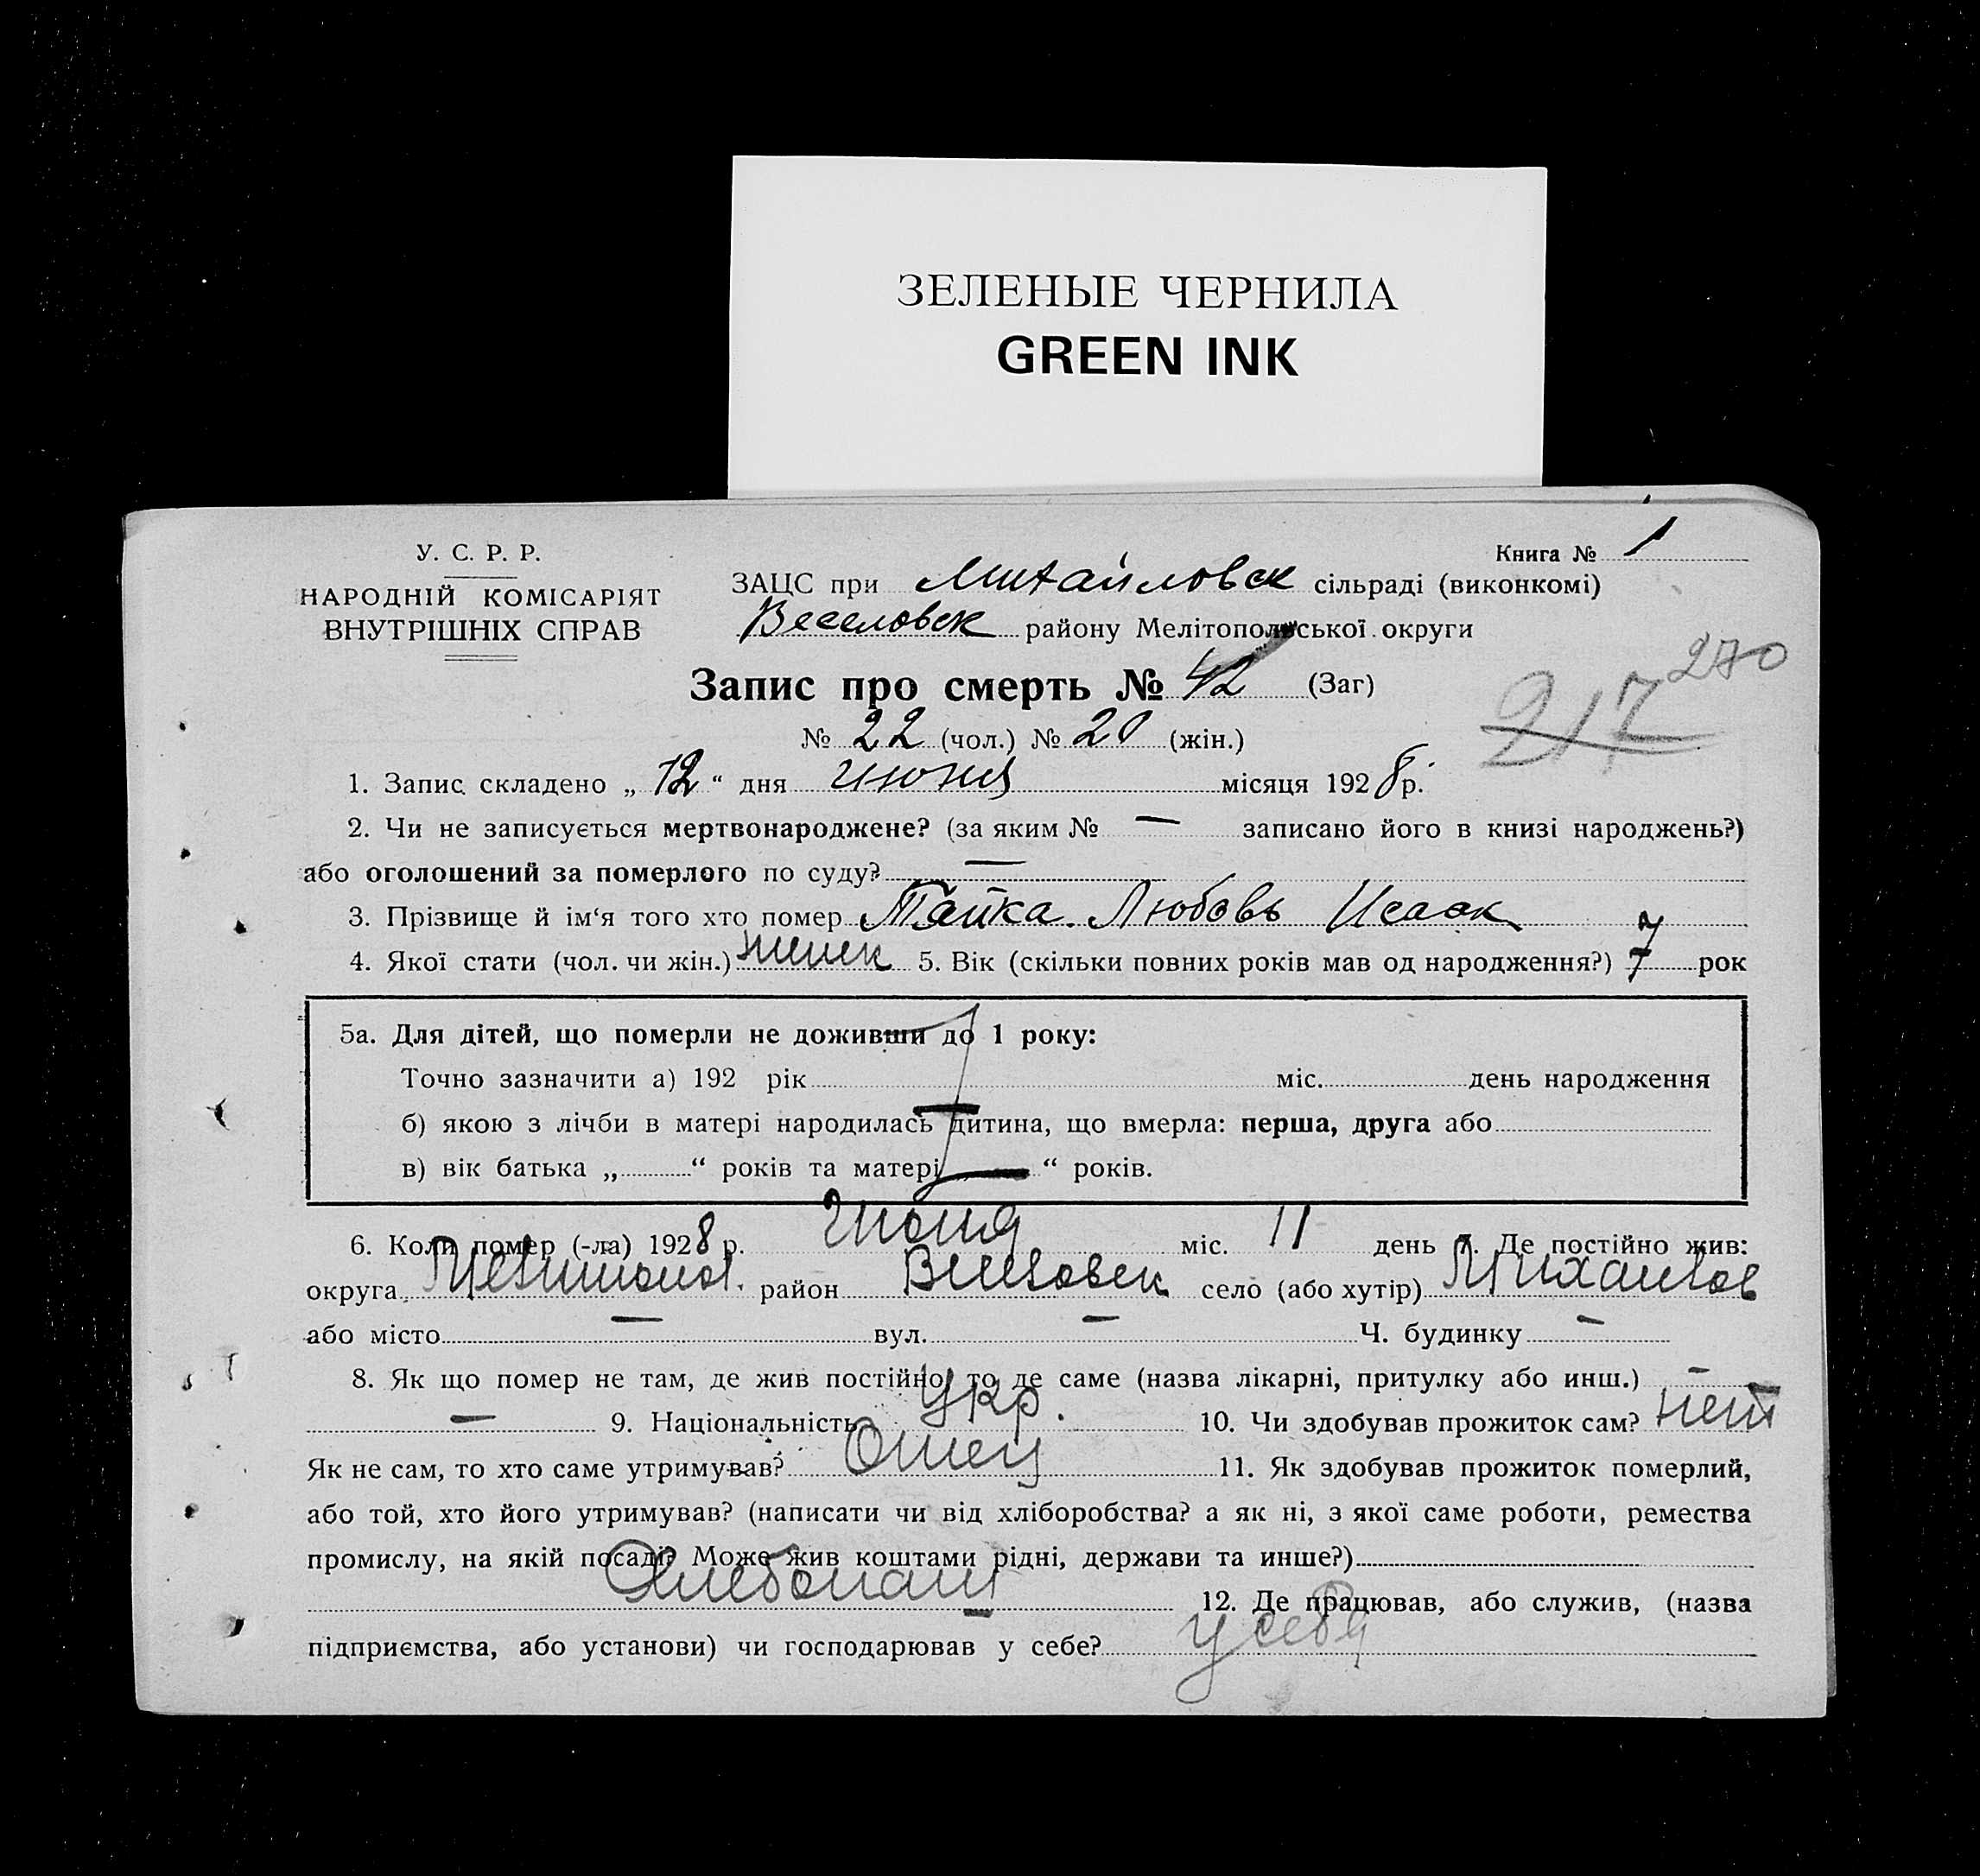 ЗЕЛЕНЫЕ ЧЕРНИЛА
GREEN INK
У. С. Р. Р.
НАРОДНІЙ КОМІСАРІЯТ
ВНУТРІШНІХ СПРАВ
Книга № 1
ЗАЦС при Михайловск сільраді (виконкомі)
Веселовск району Мелітопольської округи
270
Запис про смерть № 42 (Заг)
217
№ 22 (чол.) № 20 (жін.)
1. Запис складено „ 12 “ дня июня місяця 1928 р.
2. Чи не записується мертвонароджене? (за яким № — записано його в книзі народжень?)
або оголошений за померлого по суду? —
3. Прізвище й ім‘я того хто помер Тайка Любовь Исаак
7
4. Якої стати (чол. чи жін.) женск 5. Вік (скільки повних років мав од народження?) 7 рок
5а. Для дітей, що померли не доживши до 1 року:
Точно зазначити а) 192 рік міс. день народження
б) якою з лічби в матері народилась дитина, що вмерла: перша, друга або
в) вік батька „ “ років та матері „ “ років.
6. Коли помер (-ла) 1928 р. Июня міс. 11 день 7. Де постійно жив:
округа Мелитопол. район Веселовск село (або хутір) Михайлов
або місто — вул. — Ч. будинку —
8. Як що помер не там, де жив постійно, то де саме (назва лікарні, притулку або инш.) —
— 9. Національність Укр. 10. Чи здобував прожиток сам? нет
Як не сам, то хто саме утримував? Отец 11. Як здобував прожиток померлий,
або той, хто його утримував? (написати чи від хліборобства? а як ні, з якої саме роботи, ремества
промислу, на якій посаді? Може жив коштами рідні, держави та инше?)
Хлебопаш 12. Де працював, або служив, (назва
підприємства, або установи) чи господарював у себе? у себя